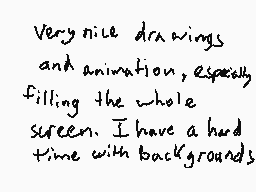 very nice drawings
and animation, especially
filling the whole
screen. I have a hard
time with backgrounds